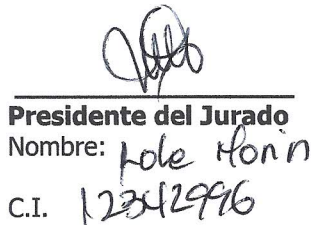 Presidente del Jurado
Nombre: Lole Morin
C.I. 12342996